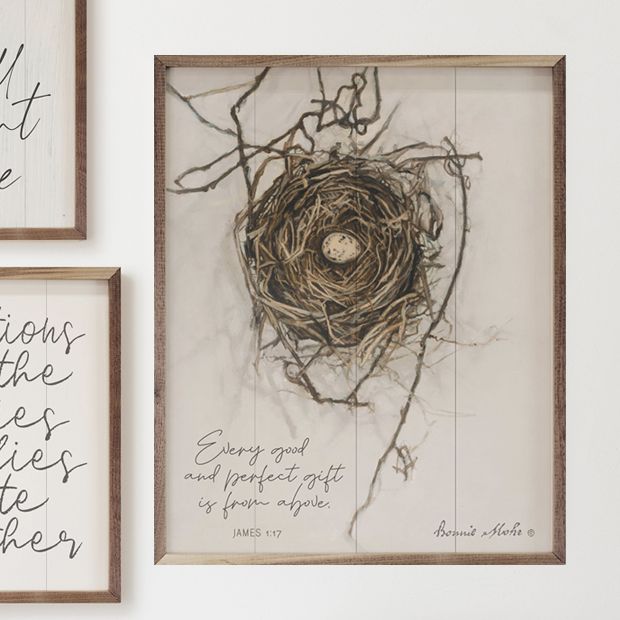 nt
e
tions
the
ies
lies
te
ther
Every good
and perfect gift
is from above.
JAMES 1:17
Bonnie Mohr ©